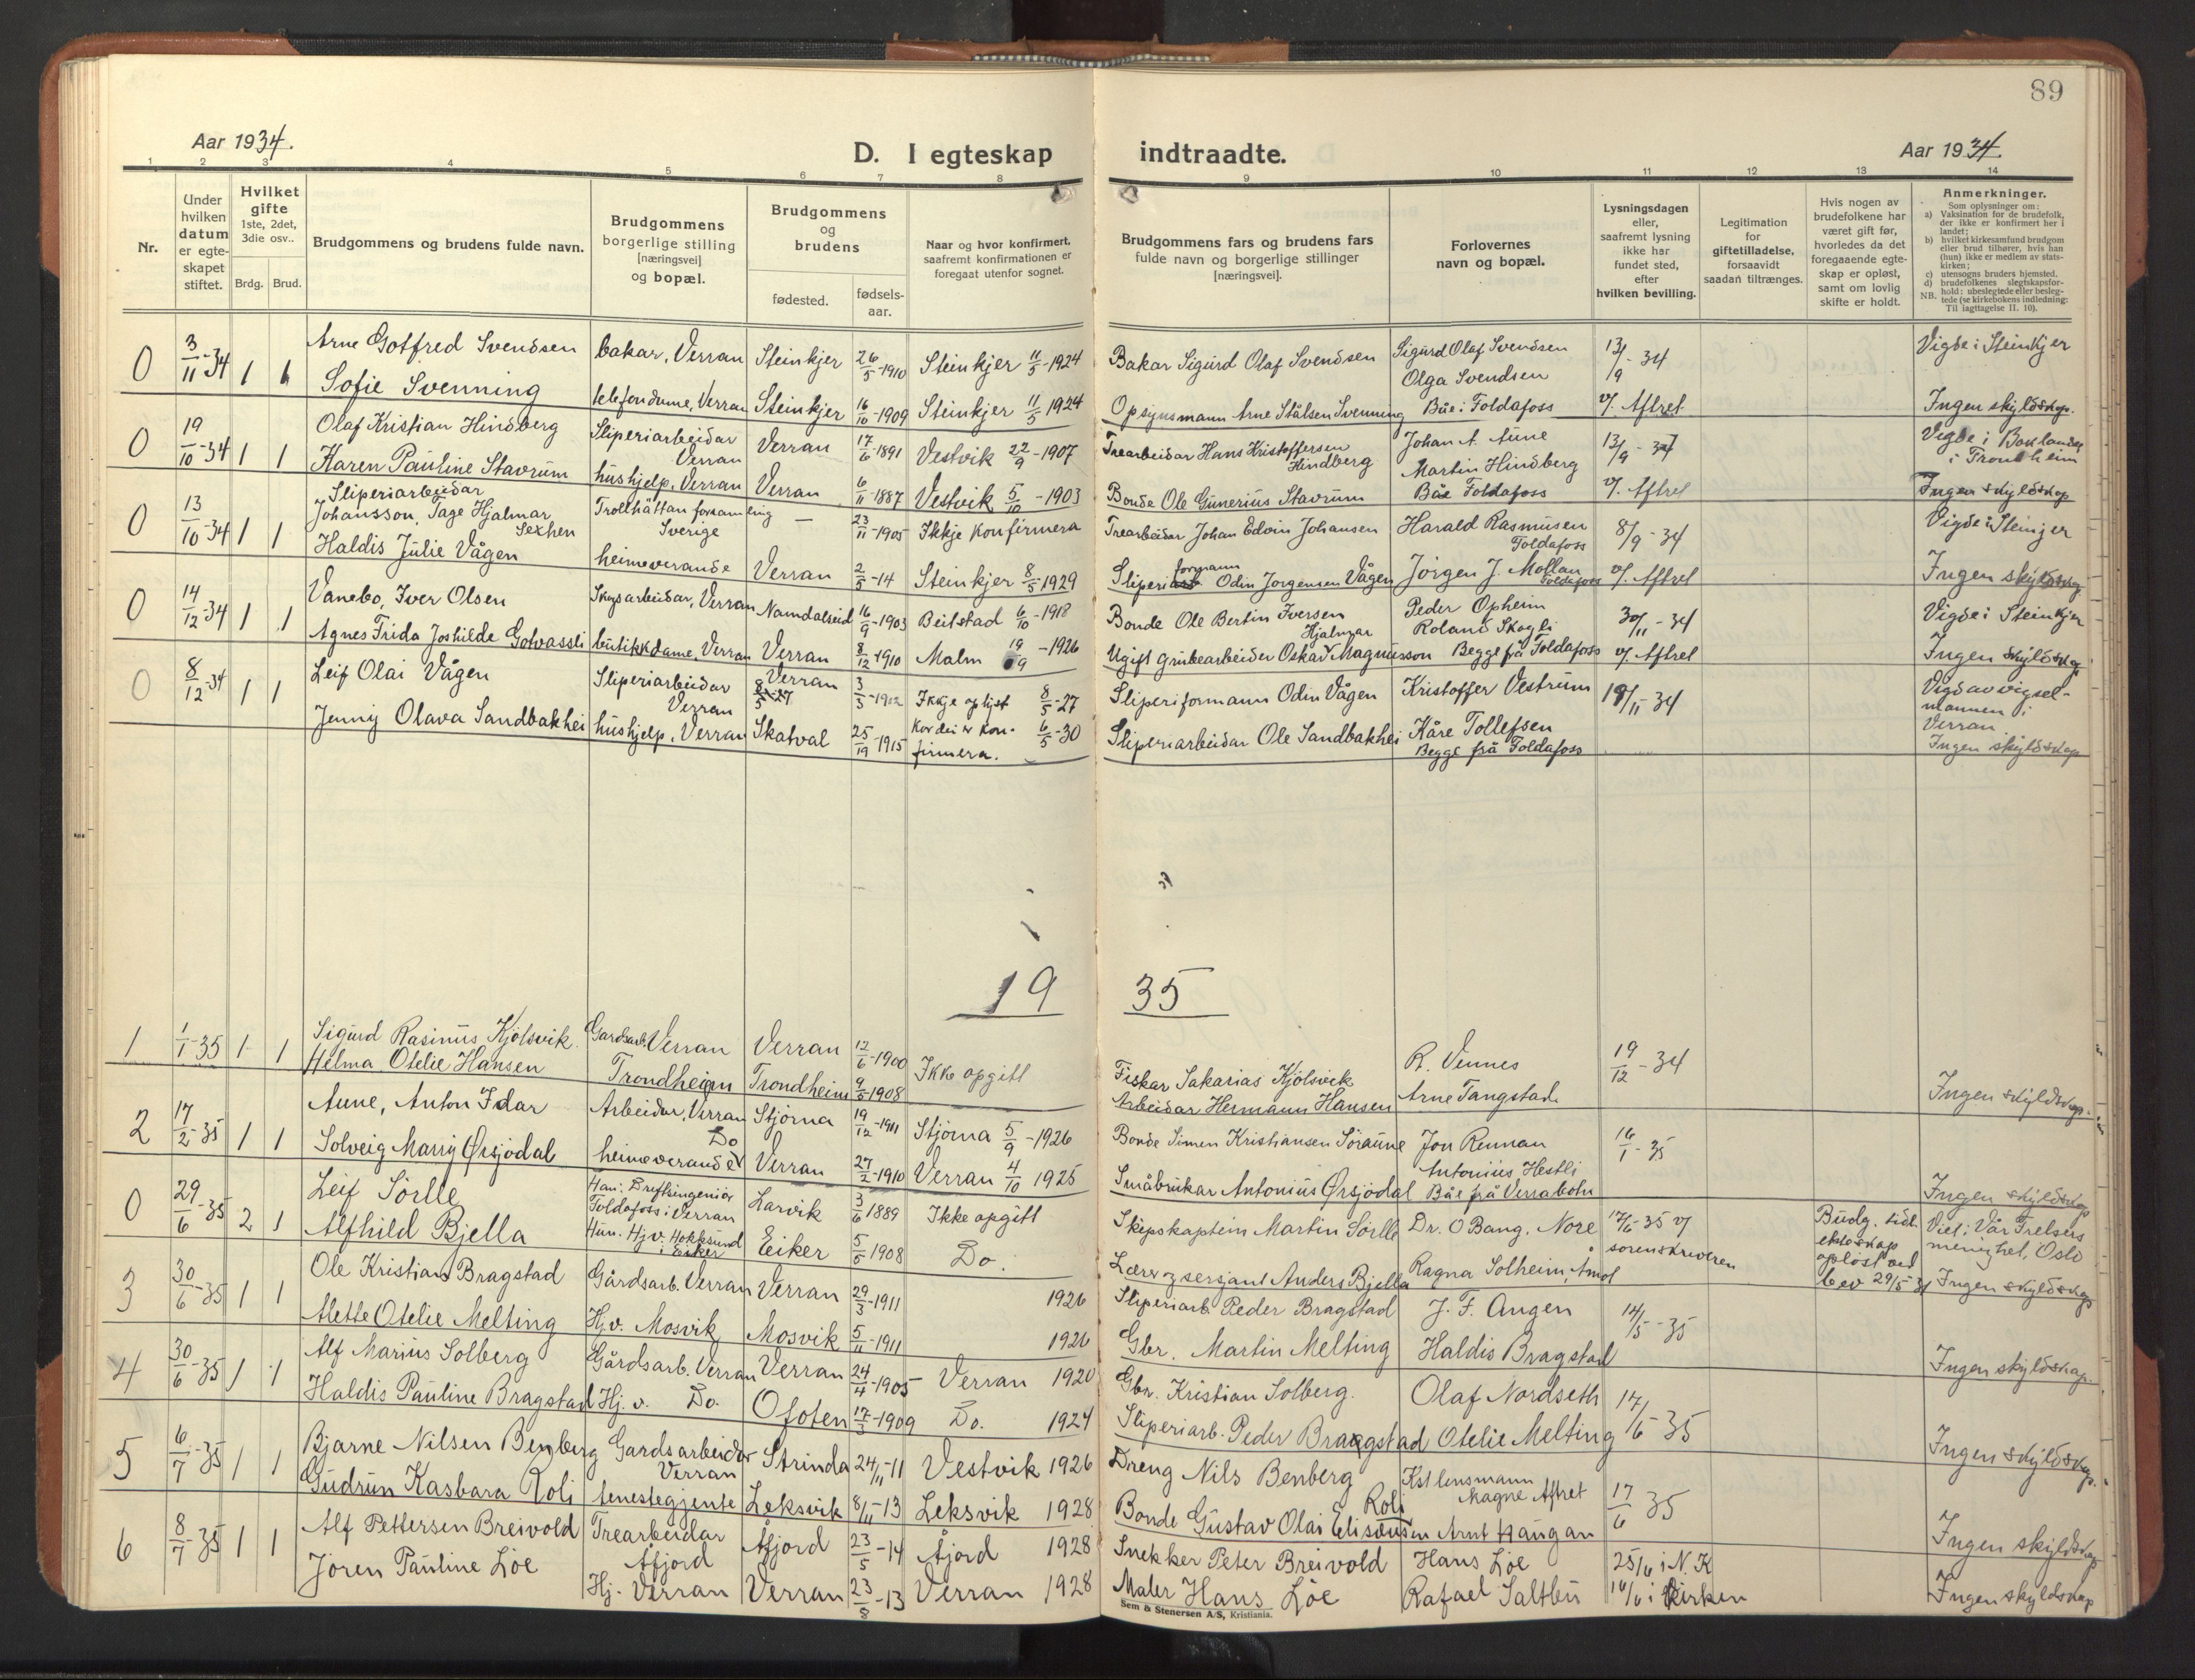 89
Aar 1934.
D. I egteskap
indtraadte.
Aar 1934.
1 2 3 4 5 6 7 8 9 10 11 12 13 14
Nr.
Under hvilken datum er egteskapet stiftet.
Hvilket gifte 1ste, 2det, 3die osv..
Brdg. Brud.
Brudgommens og brudens fulde navn.
Brudgommens borgerlige stilling [næringsvei] og bopæl.
Brudgommens og brudens
fødested.
fødsels-aar.
Naar og hvor konfirmert, saafremt konfirmationen er foregaat utenfor sognet.
Brudgommens fars og brudens fars fulde navn og borgerlige stillinger [næringsvei].
Forlovernes navn og bopæl.
Lysningsdagen eller, saafremt lysning ikke har fundet sted, efter hvilken bevilling.
Legitimation for giftetilladelse, forsaavidt saadan tiltrænges.
Hvis nogen av brudefolkene har været gift før, hvorledes da det foregaaende egteskap er opløst, samt om lovlig skifte er holdt.
Anmerkninger.
Som oplysninger om:
a) Vaksination for de brudefolk, der ikke er konfirmert her i landet;
b) hvilket kirkesamfund brudgom eller brud tilhører, hvis han (hun) ikke er medlem av statskirken;
c) utensogns bruders hjemsted.
d) brudefolkenes slegtskapsforhold: ubeslegtede eller beslegtede (se kirkebokens indledning: Til iagttagelse II. 10).
NB.
0 3/11-34 1 1 Arne Gotfred Svendsen bakar, Verran Steinkjer 26/5-1910 Steinkjer 11/5-1924 Bakar Sigurd Olaf Svendsen Sigurd Olaf Svendsen 13/9-34 Vigde i Steinkjer
Sofie Svenning telefondame, Verran Steinkjer 16/10-1909 Steinkjer 11/5-1924 Opsynsmann Arne Stålsen Svenning Olga Svendsen Båe i Foldafoss v/. Aftret Ingen skyldskap.
0 19/10-34 1 1 Olaf Kristian Hindberg Sliperiarbeidar Verran Verran 17/6-1891 Vestvik 22/9-1907 Trearbeidar Hans Kristoffersen Hindberg Johan A. Aune 13/9-34 Vigde i Baklandet i Trondheim
Karen Pauline Stavrum hushjelp, Verran Verran 6/11-1887 Vestvik 5/10-1903 Bonde Ole Gunerius Stavrum Martin Hindberg Båe Foldafoss v/. Aftret Ingen skyldskap
0 13/10-34 1 1 Sliperiarbeidar Johansson, Tage Hjalmar Sexhen Trollhättan forsamling Sverige — 23/11-1905 Ikkje konfirmera Trearbeidar Johan Edvin Johansen Harald Rasmusen Foldafoss 8/9-34 Vigde i Steinjer
Haldis Julie Vågen heimeverande Verran 2/5-14 Steinkjer 8/5-1929 Sliperiformann Odin Jorgensen Vågen Jörgen J. Mollan Foldafoss v/. Aftret Ingen skyldskap
0 14/12-34 1 1 Vanebo, Iver Olsen Skogsarbeidar, Verran Namdalseid 16/9-1903 Beitstad 6/10-1918 Bonde Ole Bertin Iversen Peder Opheim 30/11-34 Vigde i Steinkjer
Agnes Frida Joshilde Gotvassli butikkdame, Verran Verran 8/12-1910 Malm 19/9-1926 Ugift grubearbeider Oskar Hjalmar Magnusson Roland Skogli Begge frå Foldafoss v/. Aftret Ingen skyldskap
0 8/12-34 1 1 Leif Olai Vågen Sliperiarbeidar Verran Verran 3/3-1912 Ikkje oplyst 8/5-27 Sliperiformann Odin Vågen Kristoffer Vestrum 19/11-34 Vigd av vigselmannen i Verran.
Jenny Olava Sandbakhei hushjelp, Verran Skatval 25/19-1915 kor dei er konfirmera. 6/5-30 Sliperiarbeidar Ole Sandbakhei Kåre Tollefsen Begge frå Foldafoss Ingen skyldskap
1935
1 1/1-35 1 1 Sigurd Rasinus Kjölsvik Gardsarb. Verran Verran 12/6-1900 Ikke opgitt Fiskar Sakarias Kjölsvik R. Vennes 19/12-34
Helma Otelie Hansen Trondheim Trondheim 9/5-1908 Arbeidar Hermann Hansen Arne Tangstad Ingen skyldskap.
2 17/2-35 1 1 Aune, Anton Idar Arbeidar, Verran Stjörna 19/12-1911 Stjörna 5/9-1926 Bonde Simen Kristiansen Söraune Jon Rennan 16/1-35
Solveig Marry Ørsjödal heimeverande Do Verran 27/2-1910 Verran 4/10 1925 Småbrukar Antonius Ørsjödal Antonius Hestli Båe frå Verrabotn Ingen skyldskap
0 29/6-35 2 1 Leif Sörlle Han: Driftsingeniör Foldafoss i Verran Larvik 3/6 1889 Ikke opgitt Skipskaptein Martin Sörlle Dr. O Bang, Nore 17/6-35 v/ sorenskriveren Budg. tidl. ekteskap oplöst ved bev 29/5 31 Viet i Vår Frelsers menighet, Oslo
Alfhild Bjella Hun: Hj.v. Hokksund i Eiker Eiker 5/5 1908 Do. Lærer og sersjant Anders Bjella Ragna Solheim, Åmot Ingen skyldskap
3 30/6-35 1 1 Ole Kristian Bragstad Gårdsarb. Verran Verran 29/3-1911 1926 Sliperiarb. Peder Bragstad J. F. Augen 14/5-35
Alette Otelie Melting Hj.v. Mosvik Mosvik 5/11-1911 1926 Gbr. Martin Melting Haldis Bragstad Ingen skyldskap.
4 30/6-35 1 1 Alf Marius Solberg Gårdsarb. Verran Verran 24/4-1905 Verran 1920 Gbr. Kristian Solberg. Olaf Nordseth 17/6-35
Haldis Pauline Bragstad Hj. v. Do. Ofoten 17/3-1909 Do. 1924 Sliperiarb. Peder Bragstad Otelie Melting Ingen skyldskap.
5 6/7-35 1 1 Bjarne Nilsen Benberg Gardsarbeidar Verran Strinda 24/11-11 Vestvik 1926 Dreng Nils Benberg Kst lensmann Magne Aftret 17/6 35
Gudrun Kasbara Roli tenestegjente Leksvik 8/11-13 Leksvik 1928 Bonde Gustav Olai Eliseussen Roli Arnt Haugan Ingen skyldskap
6 8/7-35 1 1 Alf Pettersen Breivold Trearbeidar Åfjord Åfjord 23/5-14 Åjord 1928 Snekker Peter Breivold Hans Löe 25/6 i N. K
Jören Pauline Löe Hj. Verran Verran 23/8-13 Verran 1928 Maler Hans Löe Rafael Saltbu 16/6 i kirken Ingen skyldskap
Sem & Stenersen A/S, Kristiania.